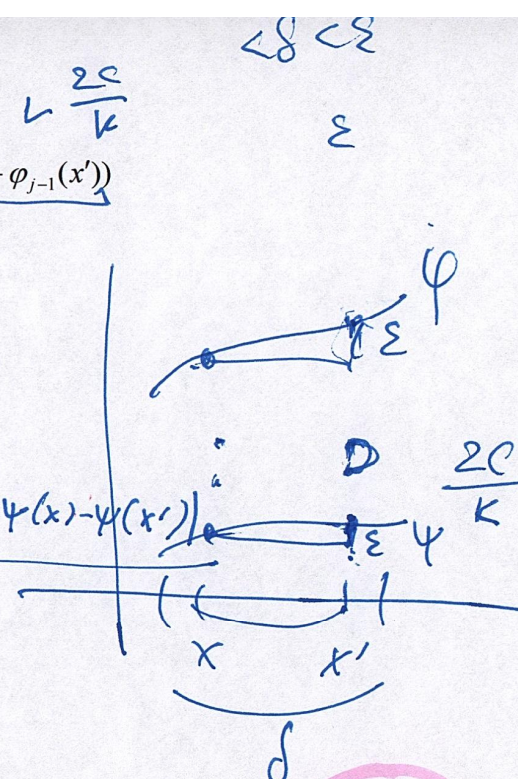 <δ <ε
2C
K
ε
φ_{j-1}(x'))
φ
ε
D
2C
K
ψ(x)-ψ(x')|
ε
ψ
x x'
δ